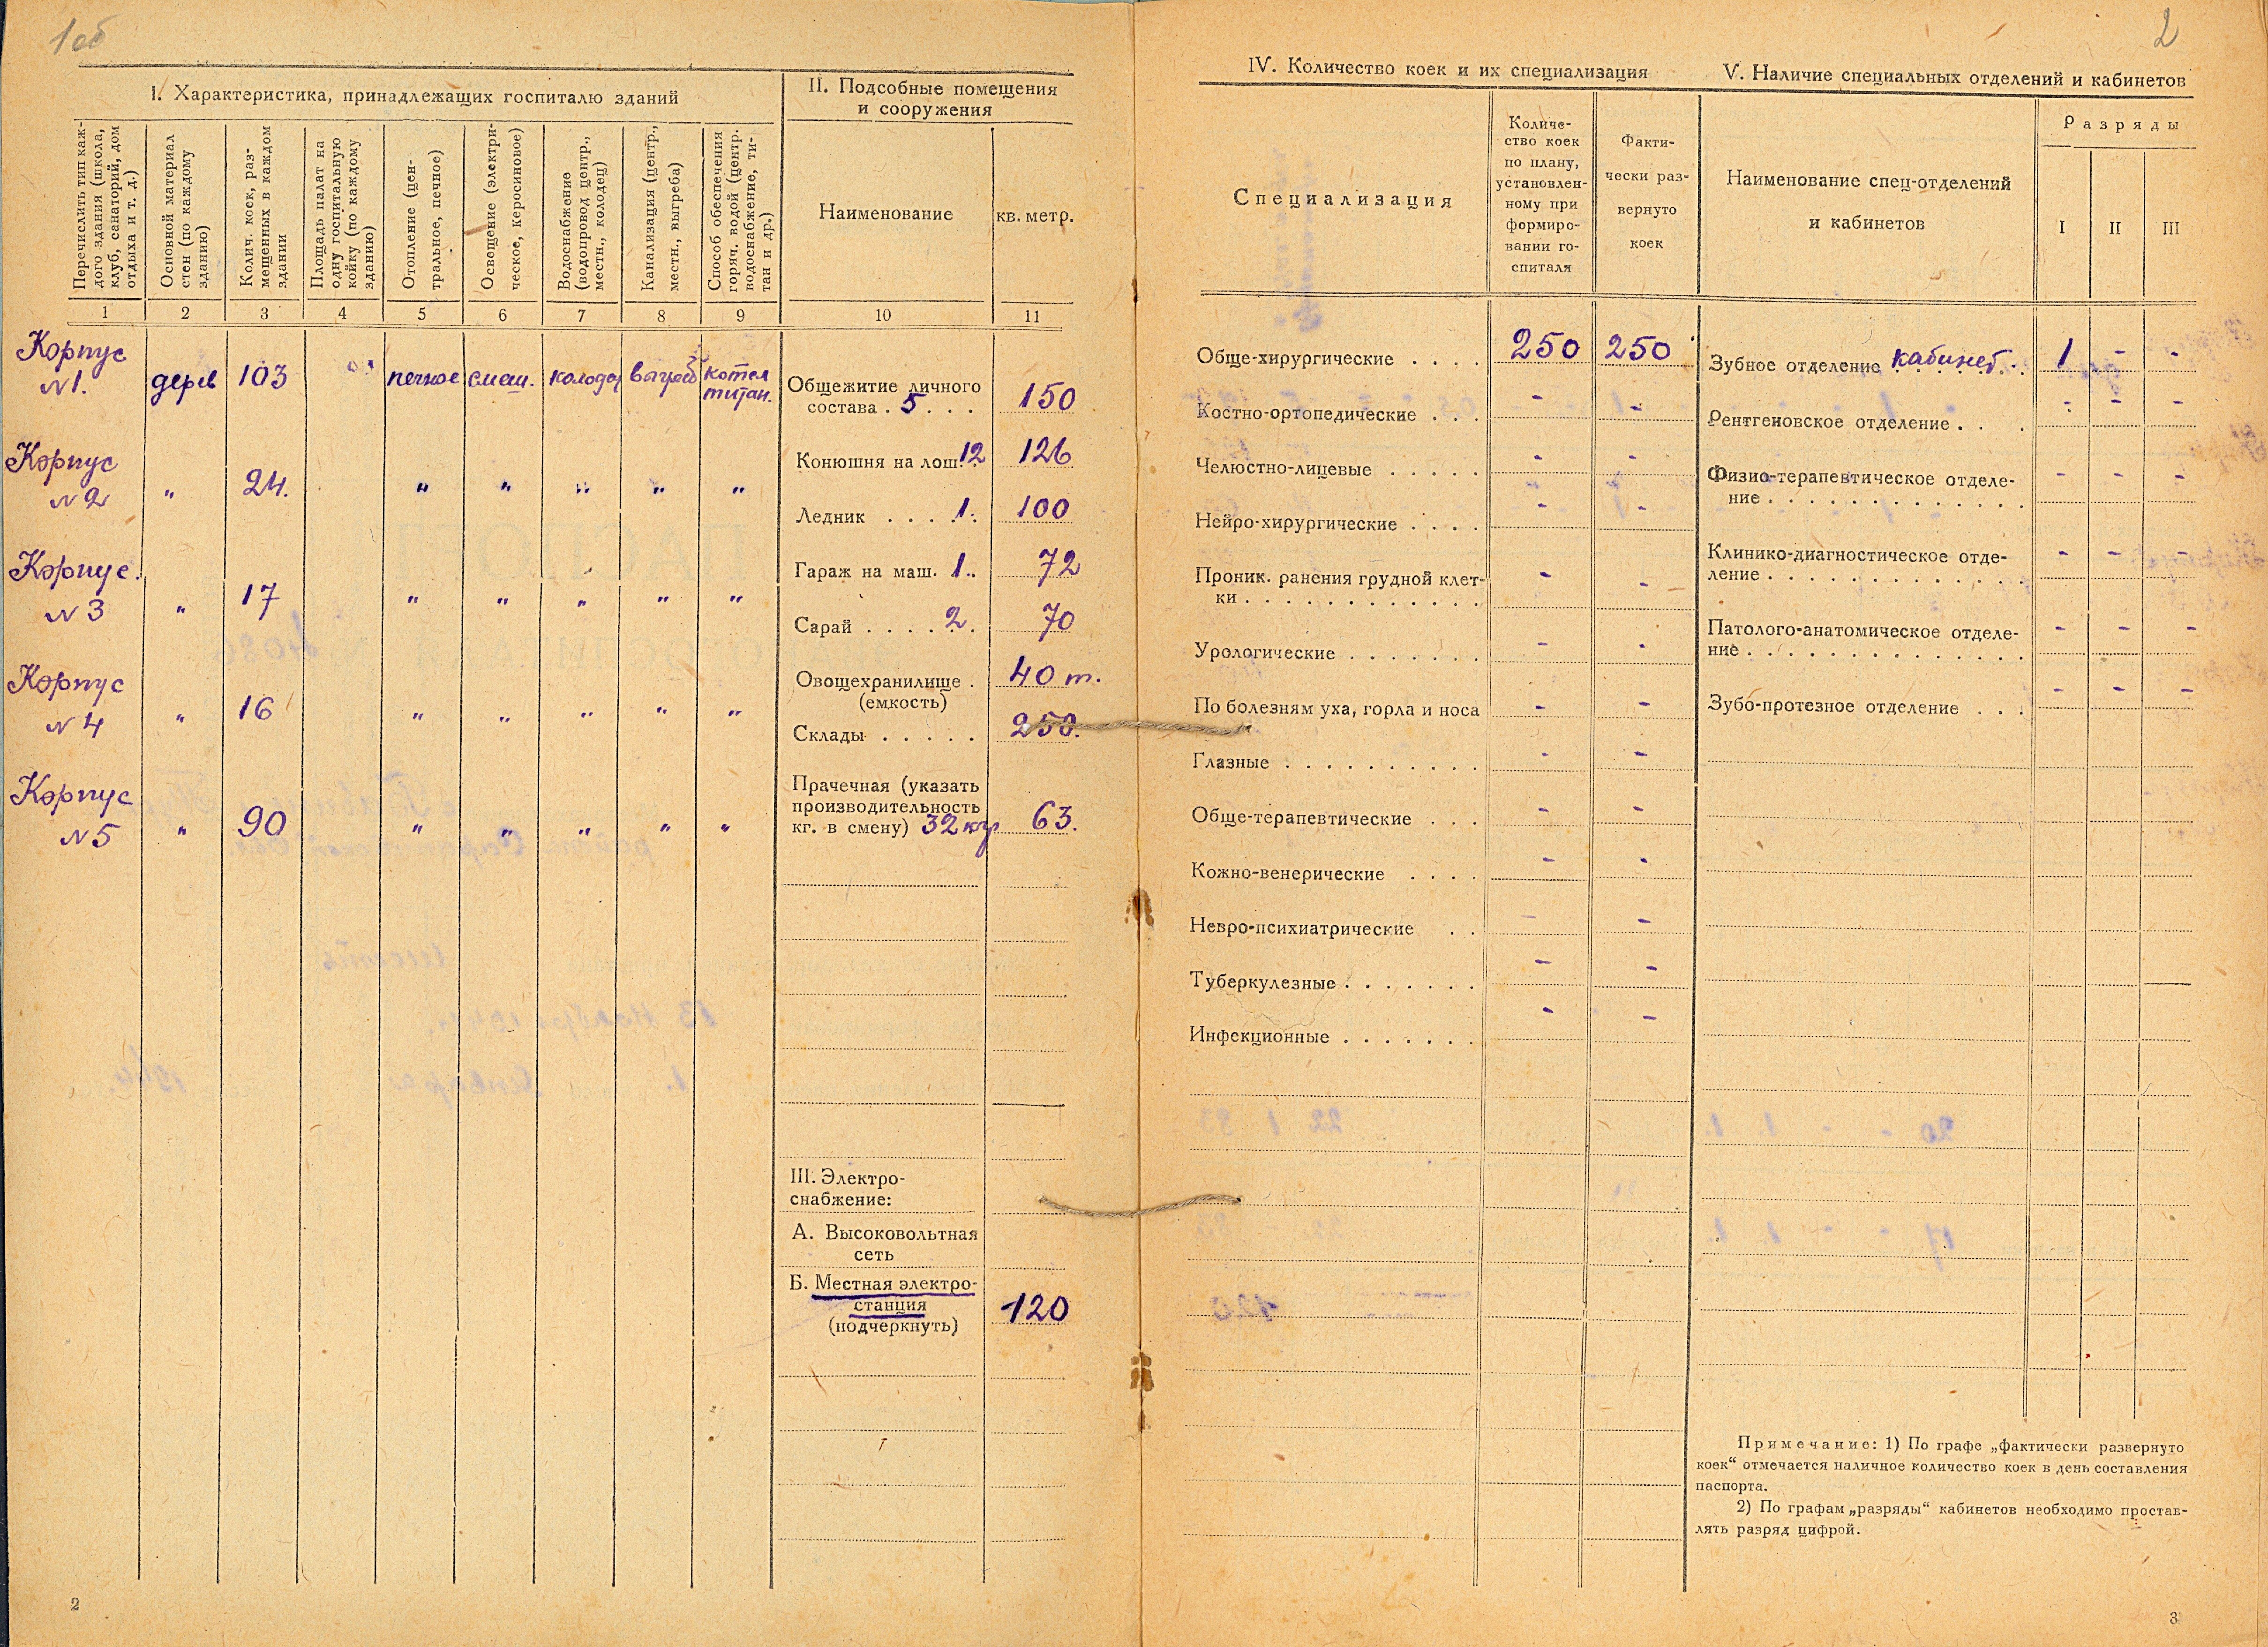 1об
I. Характеристика, принадлежащих госпиталю зданий
II. Подсобные помещения
и сооружения
Перечислить тип каж-
дого здания (школа,
клуб, санаторий, дом
отдыха и т. д.)
Основной материал
стен (по каждому
зданию)
Колич. коек, раз-
мещенных в каждом
здании
Площадь палат на
одну госпитальную
койку (по каждому
зданию)
Отопление (цен-
тральное, печное)
Освещение (электри-
ческое, керосиновое)
Водоснабжение
(водопровод центр.,
местн., колодец)
Канализация (центр.,
местн., выгреба)
Способ обеспечения
горяч. водой (центр.
водоснабжение, ти-
тан и др.)
Наименование
кв. метр.
1 2 3 4 5 6 7 8 9 10 11
Корпус
№1. дерев 103 печное смеш. колодец выгреб котел
титан.
Корпус
№2 " 24. " " " " "
Корпус.
№3 " 17 " " " " "
Корпус
№4 " 16 " " " " "
Корпус
№5 " 90 " " " " "
Общежитие личного
состава . 5 . . . 150
Конюшня на лош. 12 126
Ледник . . . . 1. 100
Гараж на маш. 1.. 72
Сарай . . . . 2. 70
Овощехранилище . 40 т.
(емкость)
Склады . . . . . 250.
Прачечная (указать
производительность
кг. в смену) 32 кгр 63.
III. Электро-
снабжение:
А. Высоковольтная
сеть
Б. Местная электро-
станция 120
(подчеркнуть)
2
2
IV. Количество коек и их специализация
Специализация
Количе-
ство коек
по плану,
установлен-
ному при
формиро-
вании го-
спиталя
Факти-
чески раз-
вернуто
коек
Обще-хирургические . . . . 250 250
Костно-ортопедические . . . - -
Челюстно-лицевые . . . . . - -
Нейро-хирургические . . . . - -
Проник. ранения грудной клет-
ки . . . . . . . . . . . - -
Урологические . . . . . . . - -
По болезням уха, горла и носа - -
Глазные . . . . . . . . . . - -
Обще-терапевтические . . . - -
Кожно-венерические . . . . - -
Невро-психиатрические . . - -
Туберкулезные . . . . . . . - -
Инфекционные . . . . . . . - -
V. Наличие специальных отделений и кабинетов
Наименование спец-отделений
и кабинетов
Разряды
I II III
Зубное отделение кабинет. 1 - -
Рентгеновское отделение . . . - - -
Физио-терапевтическое отделе-
ние . . . . . . . . . . . . - - -
Клинико-диагностическое отде-
ление . . . . . . . . . . . . - - -
Патолого-анатомическое отделе-
ние . . . . . . . . . . . . . - - -
Зубо-протезное отделение . . . - - -
Примечание: 1) По графе „фактически развернуто
коек“ отмечается наличное количество коек в день составления
паспорта.
2) По графам „разряды“ кабинетов необходимо простав-
лять разряд цифрой.
3